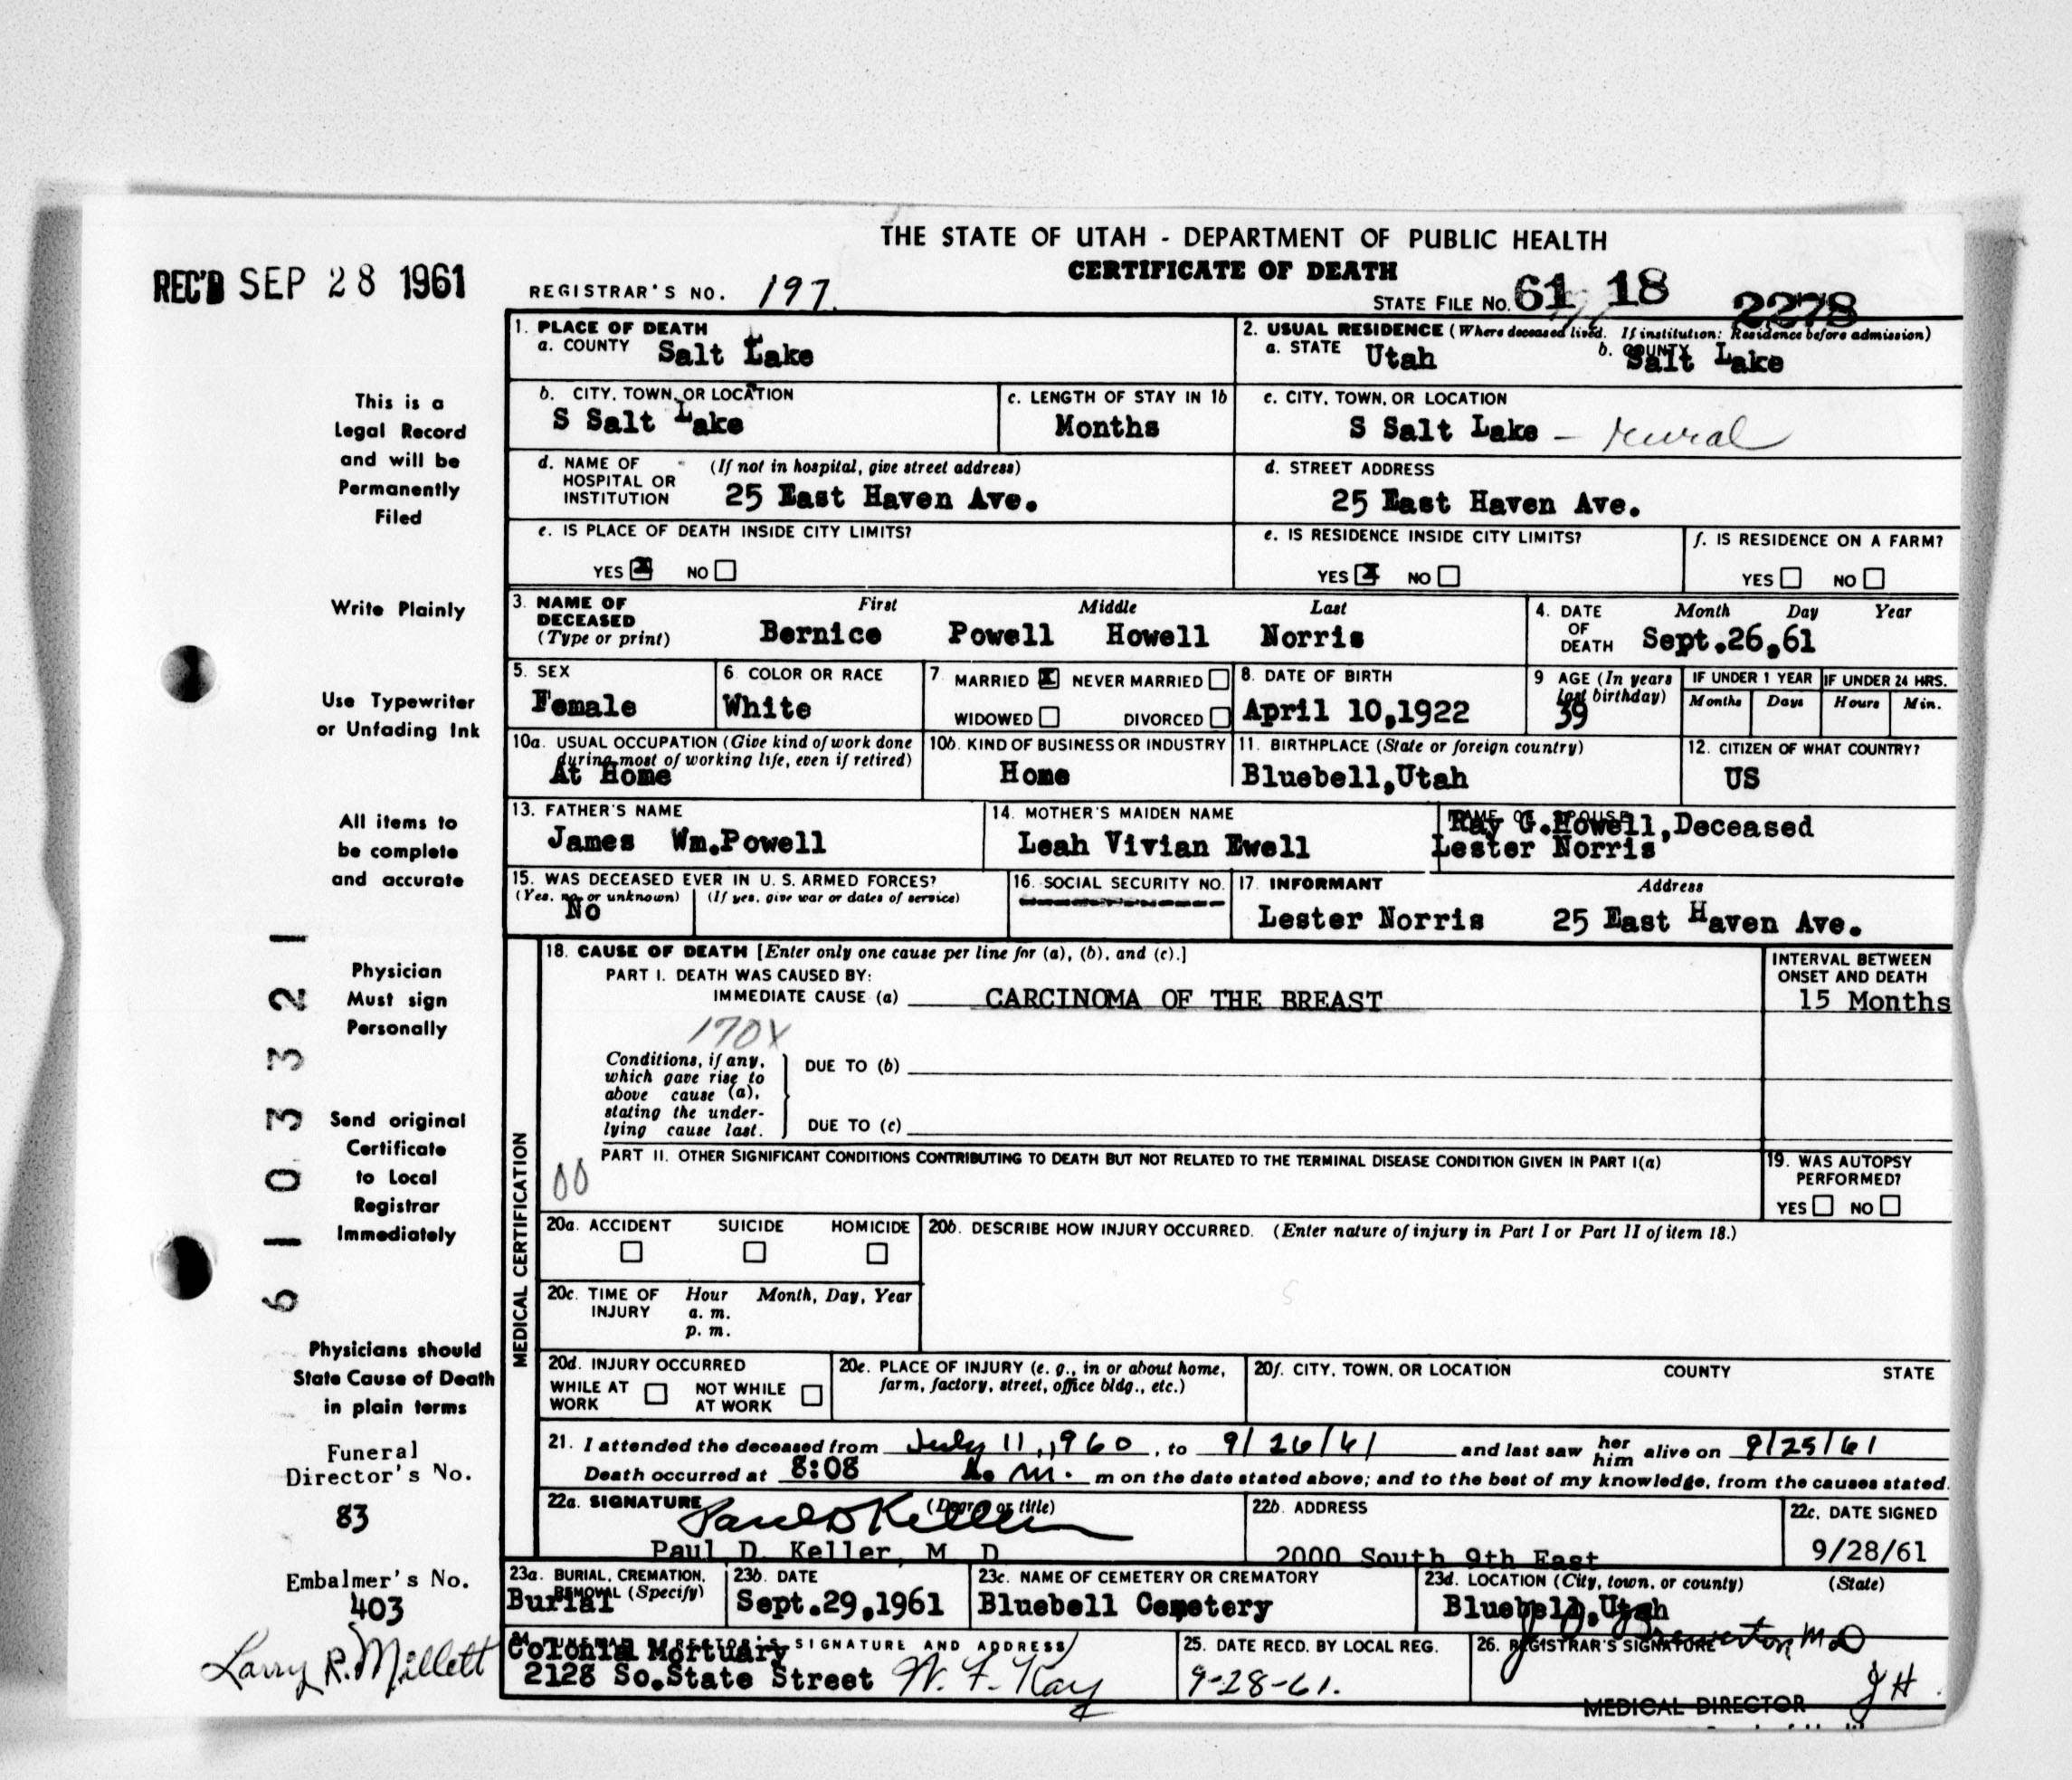 THE STATE OF UTAH - DEPARTMENT OF PUBLIC HEALTH
CERTIFICATE OF DEATH
REC'D SEP 28 1961
REGISTRAR'S NO. 197.
STATE FILE NO. 61 18 2278
1. PLACE OF DEATH
a. COUNTY Salt Lake
2. USUAL RESIDENCE (Where deceased lived. If institution: Residence before admission)
a. STATE Utah b. COUNTY Salt Lake
b. CITY, TOWN, OR LOCATION
S Salt Lake
c. LENGTH OF STAY IN 1b
Months
c. CITY, TOWN, OR LOCATION
S Salt Lake - rural
d. NAME OF HOSPITAL OR INSTITUTION (If not in hospital, give street address)
25 East Haven Ave.
d. STREET ADDRESS
25 East Haven Ave.
e. IS PLACE OF DEATH INSIDE CITY LIMITS?
YES X NO
e. IS RESIDENCE INSIDE CITY LIMITS?
YES X NO
f. IS RESIDENCE ON A FARM?
YES NO
3. NAME OF DECEASED (Type or print) First Middle Last
Bernice Powell Howell Norris
4. DATE OF DEATH Month Day Year
Sept.26,61
5. SEX
Female
6 COLOR OR RACE
White
7 MARRIED X NEVER MARRIED
WIDOWED DIVORCED
8. DATE OF BIRTH
April 10,1922
9 AGE (In years last birthday)
39
IF UNDER 1 YEAR
Months Days
IF UNDER 24 HRS.
Hours Min.
10a. USUAL OCCUPATION (Give kind of work done during most of working life, even if retired)
At Home
10b. KIND OF BUSINESS OR INDUSTRY
Home
11. BIRTHPLACE (State or foreign country)
Bluebell,Utah
12. CITIZEN OF WHAT COUNTRY?
US
13. FATHER'S NAME
James Wm.Powell
14. MOTHER'S MAIDEN NAME
Leah Vivian Ewell
NAME OF SPOUSE
Ray G.Howell,Deceased
Lester Norris
15. WAS DECEASED EVER IN U. S. ARMED FORCES?
(Yes, no, or unknown) (If yes, give war or dates of service)
No
16. SOCIAL SECURITY NO.
17. INFORMANT Address
Lester Norris 25 East Haven Ave.
MEDICAL CERTIFICATION
18. CAUSE OF DEATH [Enter only one cause per line for (a), (b), and (c).]
PART I. DEATH WAS CAUSED BY:
IMMEDIATE CAUSE (a) CARCINOMA OF THE BREAST
INTERVAL BETWEEN ONSET AND DEATH
15 Months
170X
Conditions, if any, which gave rise to above cause (a), stating the underlying cause last.
DUE TO (b)
DUE TO (c)
PART II. OTHER SIGNIFICANT CONDITIONS CONTRIBUTING TO DEATH BUT NOT RELATED TO THE TERMINAL DISEASE CONDITION GIVEN IN PART I(a)
00
19. WAS AUTOPSY PERFORMED?
YES NO
20a. ACCIDENT SUICIDE HOMICIDE
20b. DESCRIBE HOW INJURY OCCURRED. (Enter nature of injury in Part I or Part II of item 18.)
20c. TIME OF INJURY Hour Month, Day, Year
a. m.
p. m.
20d. INJURY OCCURRED
WHILE AT WORK NOT WHILE AT WORK
20e. PLACE OF INJURY (e. g., in or about home, farm, factory, street, office bldg., etc.)
20f. CITY, TOWN, OR LOCATION COUNTY STATE
21. I attended the deceased from July 11, 1960, to 9/26/61 and last saw her him alive on 9/25/61
Death occurred at 8:08 A. M. m on the date stated above; and to the best of my knowledge, from the causes stated.
22a. SIGNATURE (Degree or title)
Paul D Keller
Paul D. Keller, M D
22b. ADDRESS
2000 South 9th East
22c. DATE SIGNED
9/28/61
23a. BURIAL, CREMATION, REMOVAL (Specify)
Burial
23b. DATE
Sept.29,1961
23c. NAME OF CEMETERY OR CREMATORY
Bluebell Cemetery
23d. LOCATION (City, town, or county) (State)
Bluebell,Utah
24 FUNERAL DIRECTOR'S SIGNATURE AND ADDRESS
Colonial Mortuary
2128 So.State Street W. F. Kay
25. DATE RECD. BY LOCAL REG.
9-28-61.
26. REGISTRAR'S SIGNATURE
M D
JH
MEDICAL DIRECTOR
This is a
Legal Record
and will be
Permanently
Filed
Write Plainly
Use Typewriter
or Unfading Ink
All items to
be complete
and accurate
Physician
Must sign
Personally
Send original
Certificate
to Local
Registrar
Immediately
Physicians should
State Cause of Death
in plain terms
6103321
Funeral
Director's No.
83
Embalmer's No.
403
Larry R. Millett